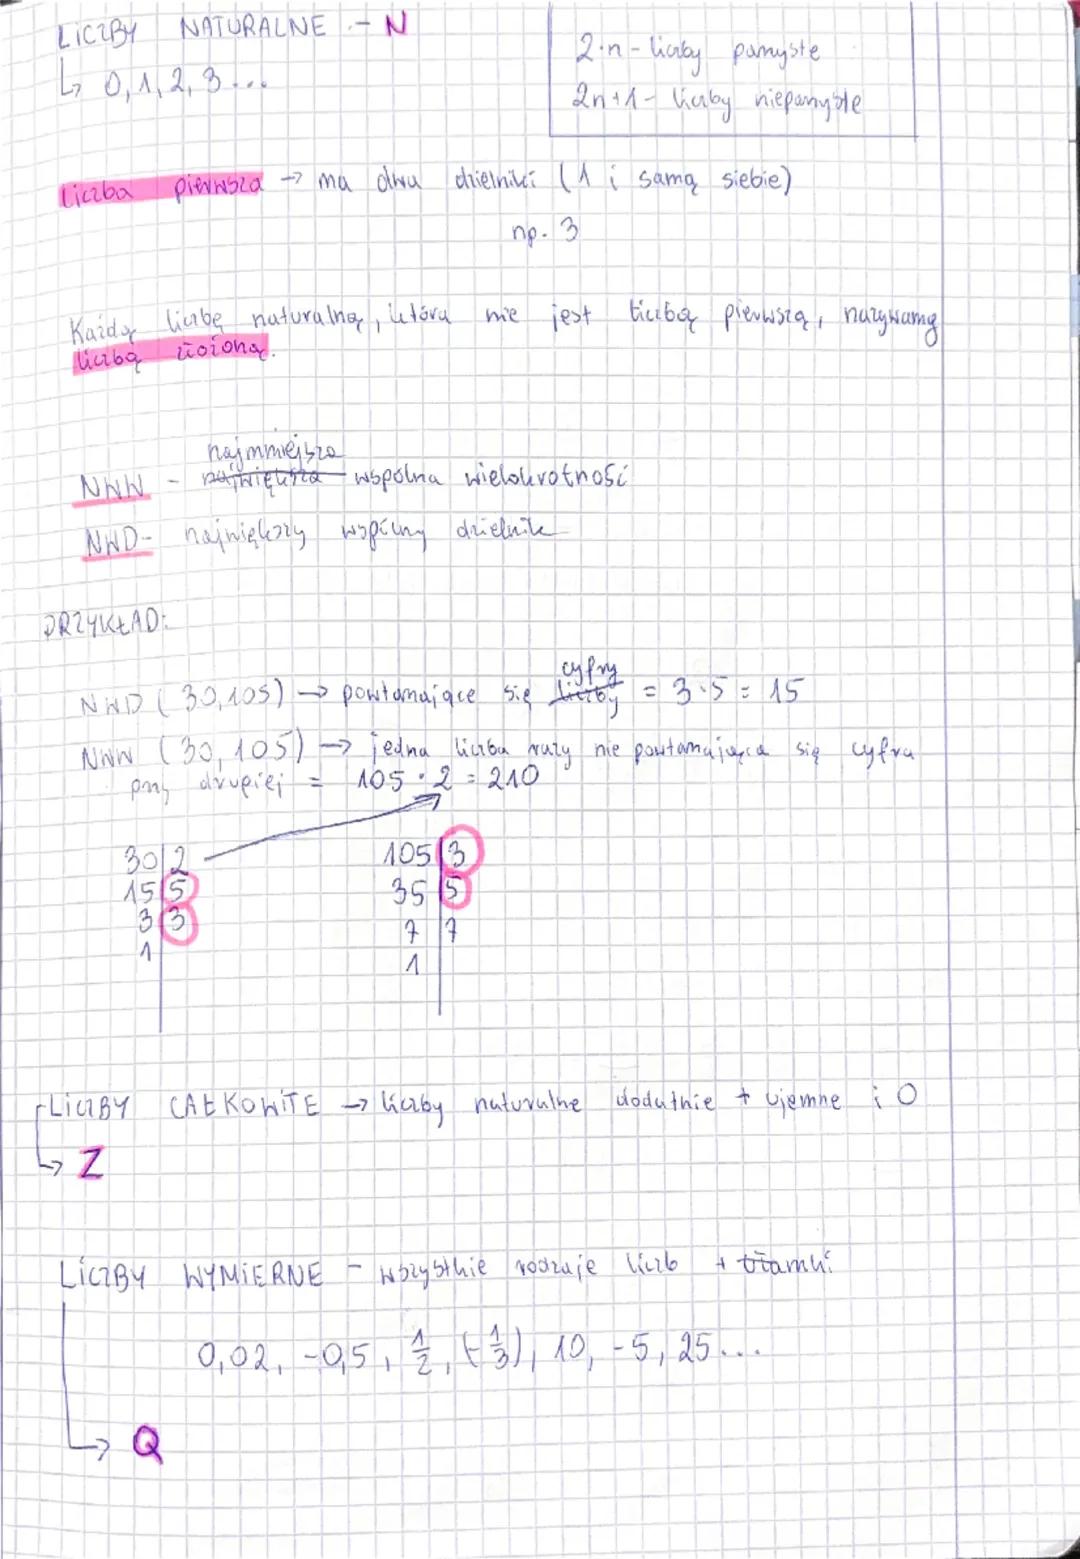 LICZBY NATURALNE - N
↳ 0, 1, 2, 3 ...
2·n - liczby parzyste
2n+1 - liczby nieparzyste
liczba pierwsza → ma dwa dzielniki (1 i samą siebie)
np. 3
Każdą liczbę naturalną, która nie jest liczbą pierwszą, nazywamy
liczbą złożoną.
najmniejsza
NWW - największa wspólna wielokrotność
NWD - największy wspólny dzielnik
PRZYKŁAD:
cyfry
NWD (30, 105) → powtarzające się liczby = 3·5 = 15
NWW (30, 105) → jedna liczba razy nie powtarzająca się cyfra
przy drugiej = 105 · 2 = 210
30|2 105|3
15|5 35|5
3|3 7|7
1| 1|
LICZBY CAŁKOWITE → liczby naturalne dodatnie + ujemne i 0
↳ Z
LICZBY WYMIERNE - wszystkie rodzaje liczb + ułamki
0,02, -0,5, 1/2, (-1/3), 10, -5, 25...
↳ Q